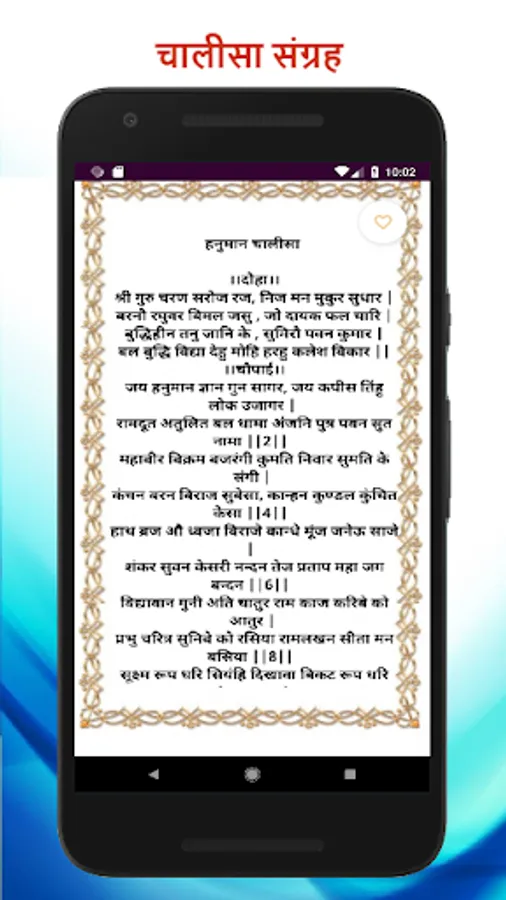 चालीसा संग्रह
10:02
हनुमान चालीसा
।।दोहा।।
श्री गुरु चरण सरोज रज, निज मन मुकुर सुधार |
बरनौ रघुवर बिमल जसु , जो दायक फल चारि |
बुद्धिहीन तनु जानि के , सुमिरौ पवन कुमार |
बल बुद्धि विद्या देहु मोहि हरहु कलेश विकार ||
।।चौपाई।।
जय हनुमान ज्ञान गुन सागर, जय कपीस तिंहु
लोक उजागर |
रामदूत अतुलित बल धामा अंजनि पुत्र पवन सुत
नामा ||2||
महावीर बिक्रम बजरंगी कुमति निवार सुमति के
संगी |
कंचन बरन बिराज सुबेसा, कान्हन कुण्डल कुंचित
केसा ||4||
हाथ ब्रज औ ध्वजा विराजे कान्धे मूंज जनेऊ साजे
|
शंकर सुवन केसरी नन्दन तेज प्रताप महा जग
बन्दन ||6||
विद्यावान गुनी अति चातुर राम काज करिबे को
आतुर |
प्रभु चरित्र सुनिबे को रसिया रामलखन सीता मन
बसिया ||8||
सूक्ष्म रूप धरि सियंहि दिखावा बिकट रूप धरि